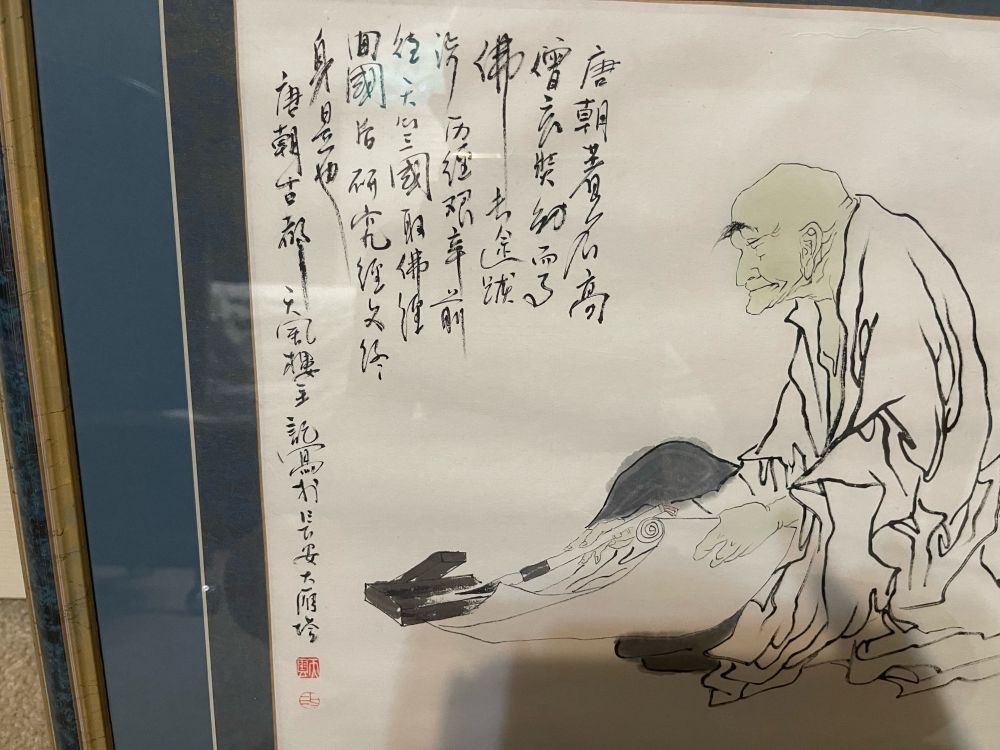 唐朝著名高
僧玄奘幼而为
佛 长途跋
涉历經艰辛前
往天竺國取佛經
回國后研究經文终
身是也
唐朝古都 天風樓主 記寫于長安大雁塔